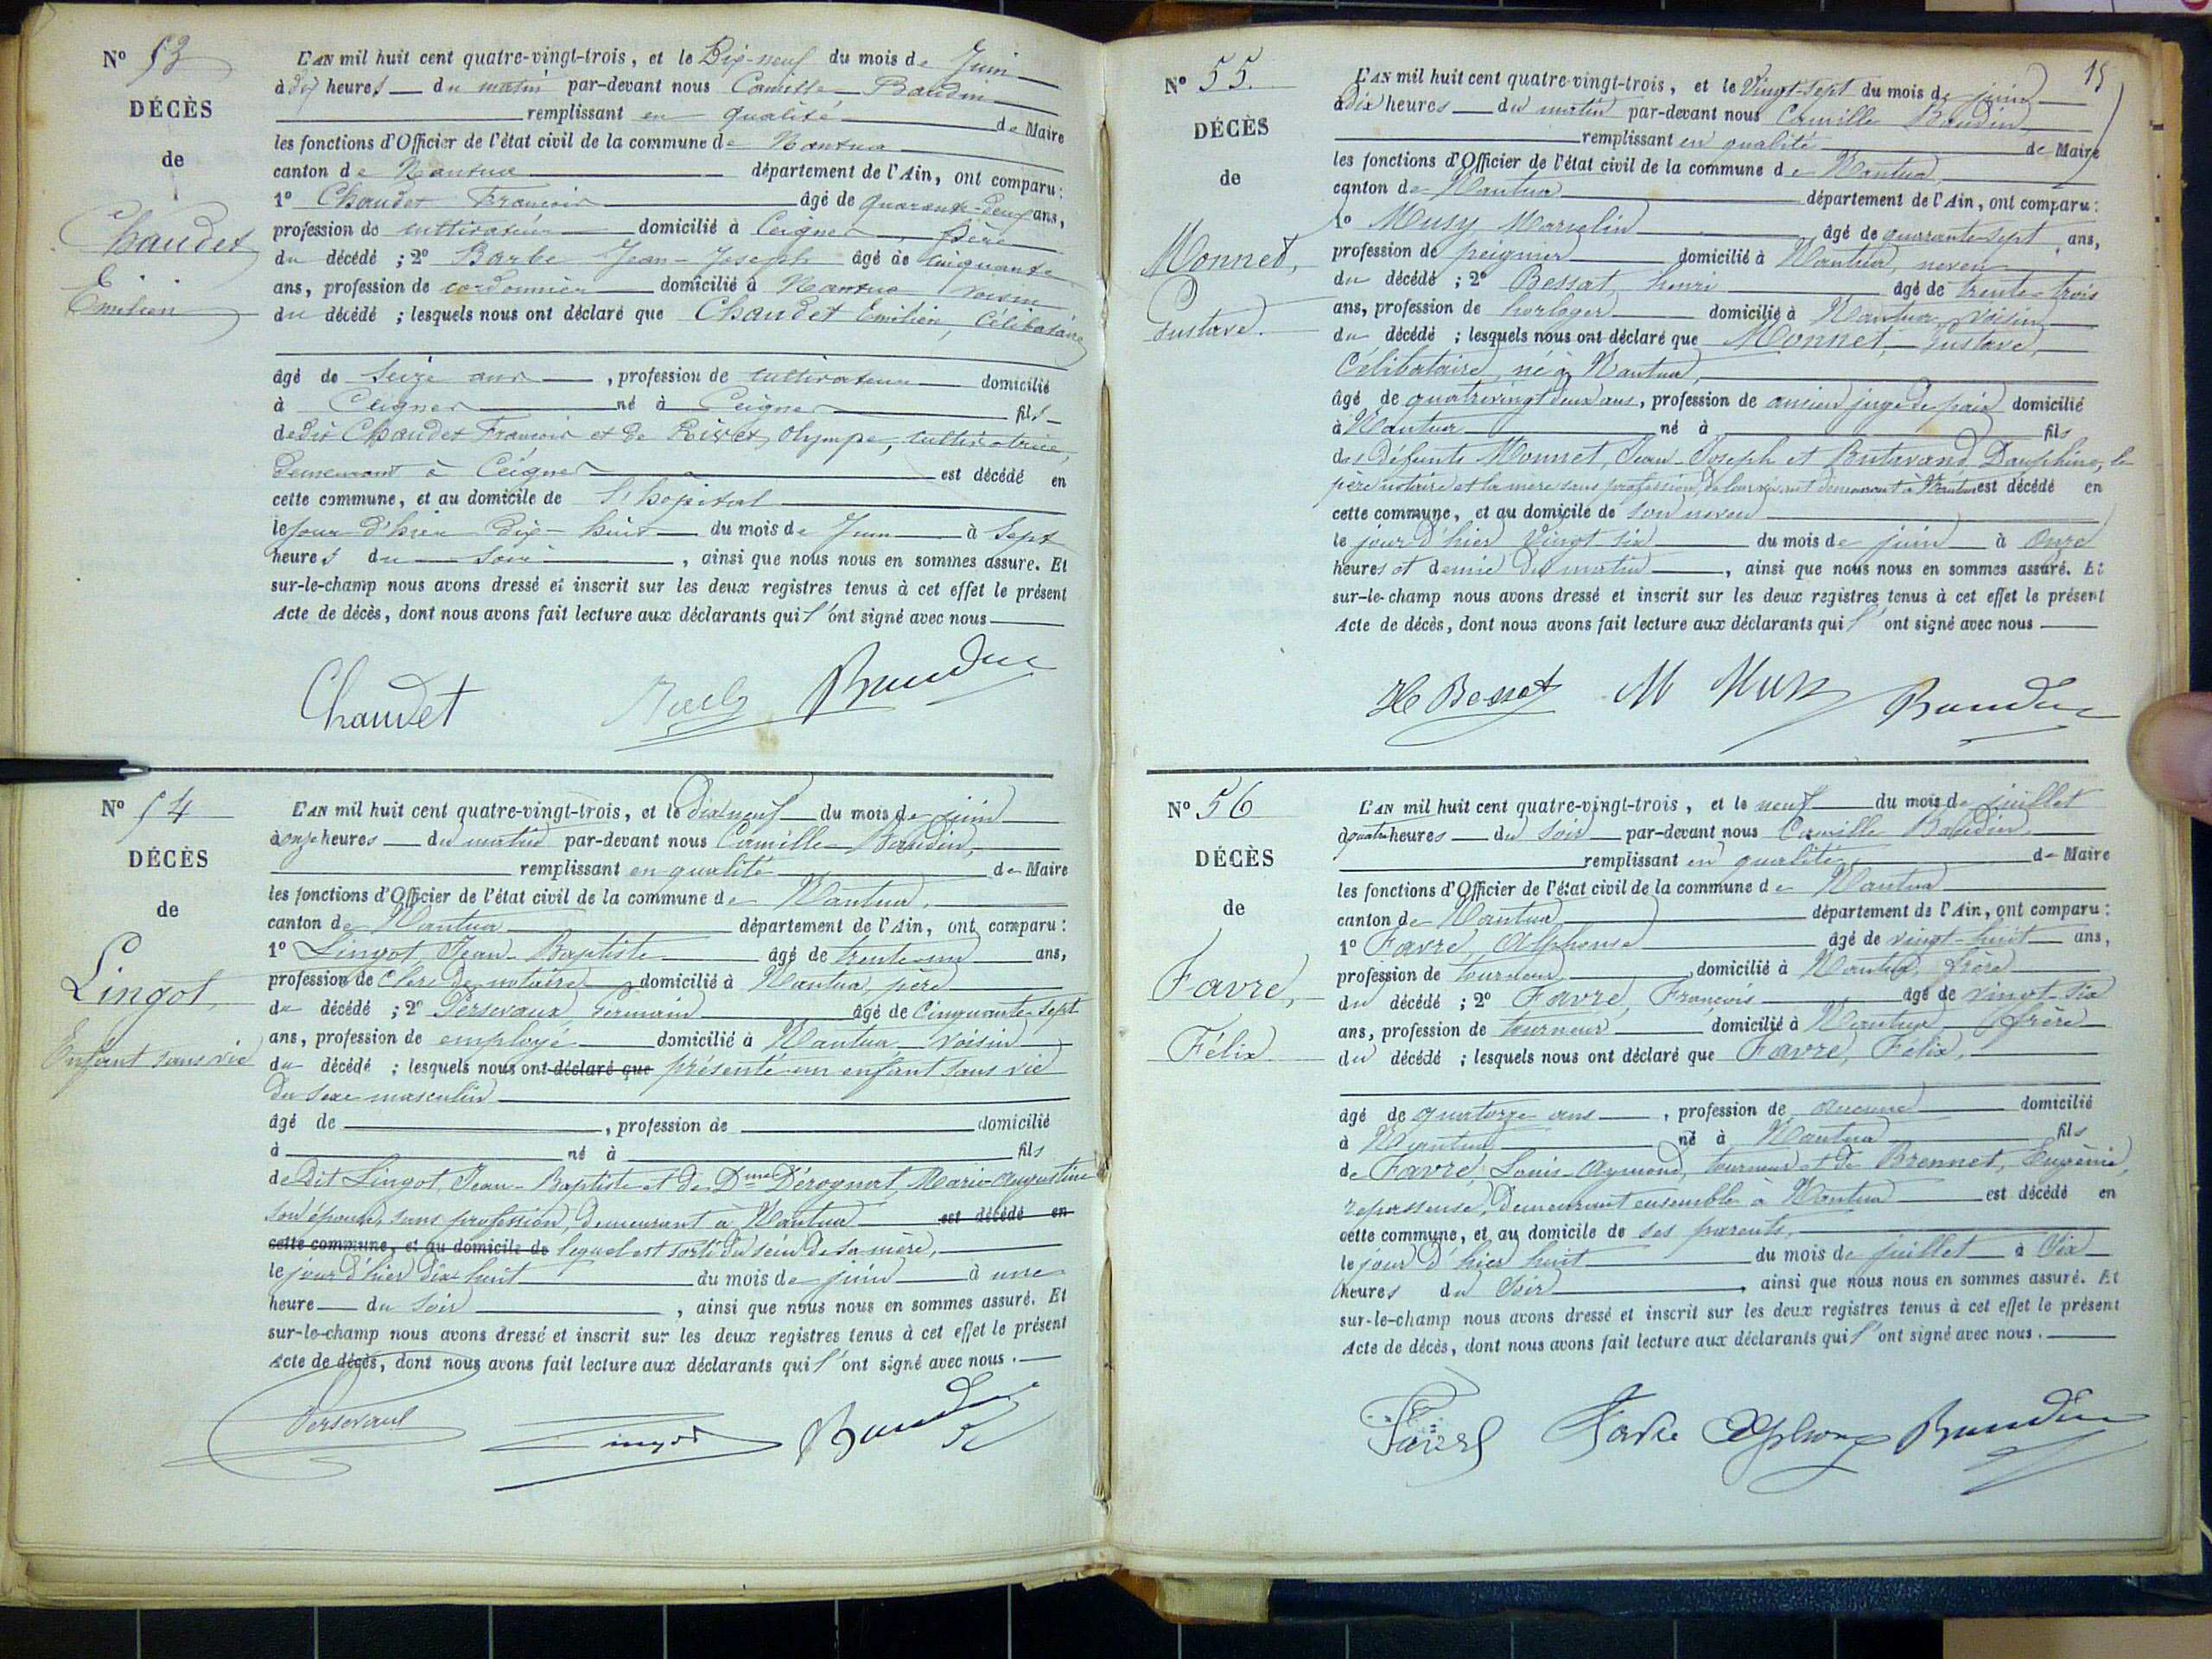 Nº 53
DÉCÈS
de
Chaudet
Emilien
L'AN mil huit cent quatre-vingt-trois, et le Dix-neuf du mois de Juin
à dix heures du matin par-devant nous Camille Baudin
remplissant en qualité de Maire
les fonctions d'Officier de l'état civil de la commune de Nantua
canton de Nantua département de l'Ain, ont comparu :
1º Chaudet François âgé de quarante-deux ans,
profession de cultivateur domicilié à Ceignes, père
du décédé ; 2º Barbe Jean-Joseph âgé de cinquante
ans, profession de cordonnier domicilié à Nantua voisin
du décédé ; lesquels nous ont déclaré que Chaudet Emilien, Célibataire
âgé de seize ans, profession de cultivateur domicilié
à Ceignes né à Ceignes fils
de dit Chaudet François et de Rivet, Olympe, cultivatrice,
demeurant à Ceignes est décédé en
cette commune, et au domicile de l'hôpital
le jour d'hier dix-huit du mois de Juin à Sept
heures du soir, ainsi que nous nous en sommes assuré. Et
sur-le-champ nous avons dressé et inscrit sur les deux registres tenus à cet effet le présent
Acte de décès, dont nous avons fait lecture aux déclarants qui l'ont signé avec nous
Chaudet Baudin
Nº 54
DÉCÈS
de
Lingot,
Enfant sans vie
L'AN mil huit cent quatre-vingt-trois, et le dix neuf du mois de juin
à onze heures du matin par-devant nous Camille Baudin,
remplissant en qualité de Maire
les fonctions d'Officier de l'état civil de la commune de Nantua,
canton de Nantua département de l'Ain, ont comparu :
1º Lingot, Jean-Baptiste âgé de trente-un ans,
profession de Clerc de notaire domicilié à Nantua, père
du décédé ; 2º Persevaux Germain âgé de Cinquante-sept
ans, profession de employé domicilié à Nantua voisin
du décédé ; lesquels nous ont déclaré que présenté un enfant sans vie
du sexe masculin
âgé de , profession de domicilié
à né à fils
de Dit Lingot, Jean-Baptiste et de Dme Dérognat, Marie-Augustine
son épouse, sans profession, demeurant à Nantua est décédé en
cette commune, et au domicile de lequel est sorti du sein de sa mère,
le jour d'hier dix huit du mois de juin à une
heure du soir, ainsi que nous nous en sommes assuré. Et
sur-le-champ nous avons dressé et inscrit sur les deux registres tenus à cet effet le présent
Acte de décès, dont nous avons fait lecture aux déclarants qui l'ont signé avec nous.
Lingot Baudin
15
Nº 55.
DÉCÈS
de
Monnet,
Gustave.
L'AN mil huit cent quatre-vingt-trois, et le Vingt-sept du mois de juin
à dix heures du matin par-devant nous Camille Baudin
remplissant en qualité de Maire
les fonctions d'Officier de l'état civil de la commune de Nantua
canton de Nantua département de l'Ain, ont comparu :
1º Musy Marcelin âgé de quarante-sept ans,
profession de peignier domicilié à Nantua, neveu
du décédé ; 2º Bessat, henri âgé de trente-trois
ans, profession de horloger domicilié à Nantua, voisin
du décédé ; lesquels nous ont déclaré que Monnet, Gustave,
Célibataire, né à Nantua,
âgé de quatre vingt deux ans, profession de ancien juge de paix domicilié
à Nantua né à fils
des Défunts Monnet, Jean-Joseph et Dauphine, le
père notaire et la mère sans profession, de leur vivant demeurant à Nantua est décédé en
cette commune, et au domicile de son neveu
le jour d'hier Vingt six du mois de juin à Onze
heures et demie du matin, ainsi que nous nous en sommes assuré. Et
sur-le-champ nous avons dressé et inscrit sur les deux registres tenus à cet effet le présent
Acte de décès, dont nous avons fait lecture aux déclarants qui l'ont signé avec nous
H Bessat M Musy Baudin
Nº 56
DÉCÈS
de
Favre,
Félix
L'AN mil huit cent quatre-vingt-trois, et le neuf du mois de juillet
à quatre heures du soir par-devant nous Camille Baudin
remplissant en qualité de Maire
les fonctions d'Officier de l'état civil de la commune de Nantua
canton de Nantua département de l'Ain, ont comparu :
1º Favre, Alphonse âgé de vingt-huit ans,
profession de tourneur domicilié à Nantua, frère
du décédé ; 2º Favre, François âgé de vingt-six
ans, profession de tourneur domicilié à Nantua, frère
du décédé ; lesquels nous ont déclaré que Favre, Félix,
âgé de quatorze ans, profession de aucune domicilié
à Nantua né à Nantua fils
de Favre, Louis-Aymond, tourneur et de Brennet, Eugénie,
repasseuse, demeurant ensemble à Nantua est décédé en
cette commune, et au domicile de ses parents,
le jour d'hier huit du mois de juillet à Six
heures du Soir, ainsi que nous nous en sommes assuré. Et
sur-le-champ nous avons dressé et inscrit sur les deux registres tenus à cet effet le présent
Acte de décès, dont nous avons fait lecture aux déclarants qui l'ont signé avec nous.
Favre Favre Alphonse Baudin